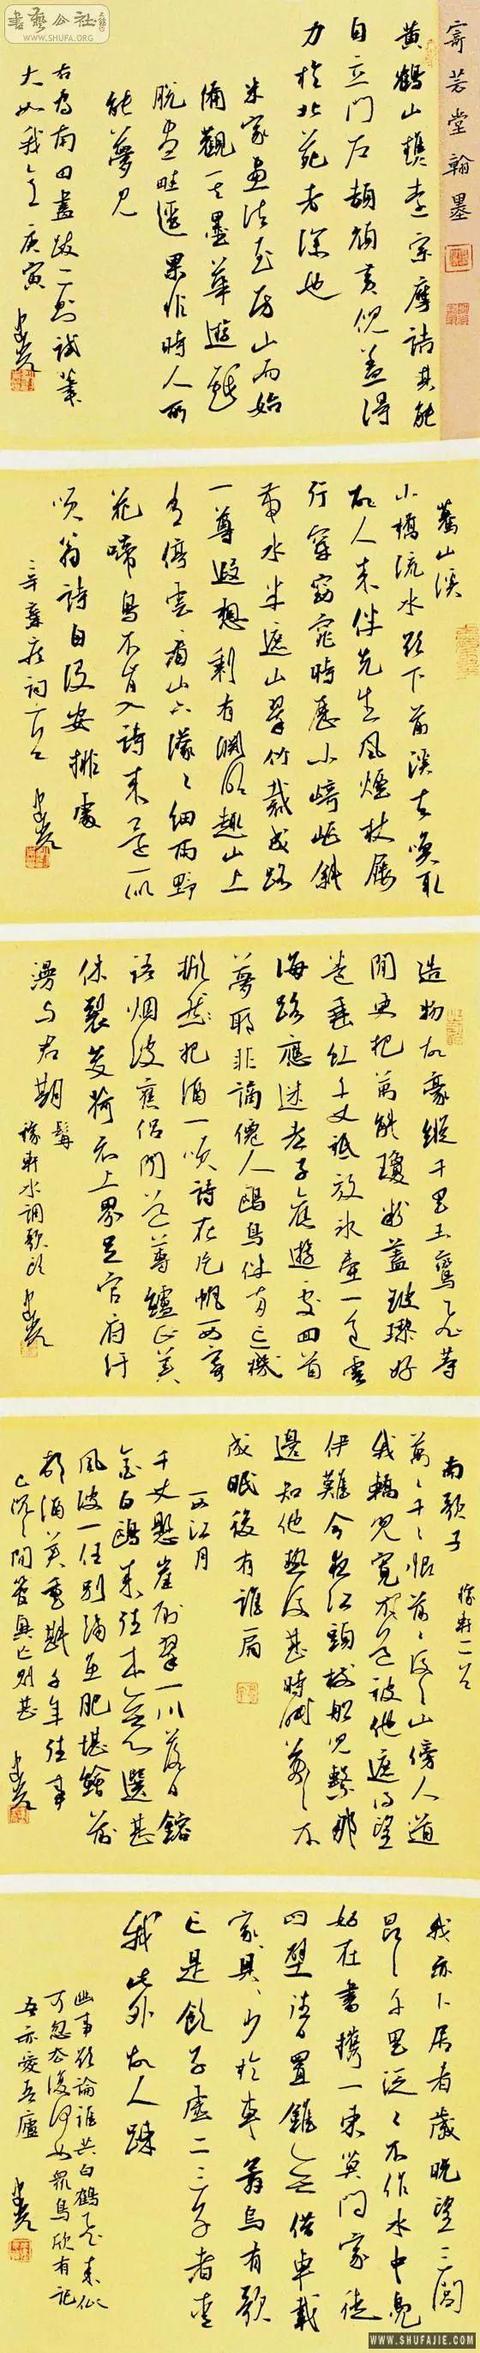 書藝公社
WWW.SHUFA.ORG
堂翰墨
黄鶴山樵遠宗摩詰其能
自立門戶頡頏黄倪盖得
力於北苑者深也
米家畫法至房山而始
備觀其墨華遊戲
脱盡畦逕果非時人所
能夢見
右為南田畫跋二則試筆
大如我意庚寅
蓦山溪
小橋流水欲下前溪去喚取
故人来伴先生風煙杖屨
行穿窈窕時歷小崎嶇斜
帶水半遮山翠竹栽成路
一尊遐想剩有淵明趣山上
有停雲看山下濛濛細雨野
花啼鳥不肯入詩来還一似
笑翁詩自没安排處
辛棄疾詞一首
造物故豪縱千里玉鸞飛等
閒更把萬斛瓊粉蓋玻瓈好
卷垂虹千丈祇放冰壺一色雲
海路應迷老子舊遊處回首
夢耶非謫僊人鷗鳥伴兩忘機
掀髯把酒一笑詩在片帆西寄
語烟波舊侶聞道蓴鱸正美
休裂芰荷衣上界足官府汗
漫与君期髯
稼軒水調歌頭
南歌子 稼軒二首
萬々千々恨前々後々山傍人道
我轎兒寬不道被他遮得望
伊難今夜江頭樹船兒繫那
邊知他熱後甚時眠萬々不
成眠後有誰扇
西江月
千丈懸崖削翠一川落日鎔
金白鷗来往本無心選甚
風波一任別浦魚肥堪鱠前
村酒美重斟千年往事
已沉々閒管興亡則甚
我亦卜居者歲晚望三閭
昂々千里泛々不作水中鳧
好在書攜一束莫問家徒
四壁往日置錐無借車載
家具々少於車舞烏有歌
亡是飲子虛二三子者愛
我此外故人疎
幽事欲論誰共白鶴飛来似
可忽去復何如衆鳥欣有託
吾亦愛吾廬
WWW.SHUFAJIE.COM